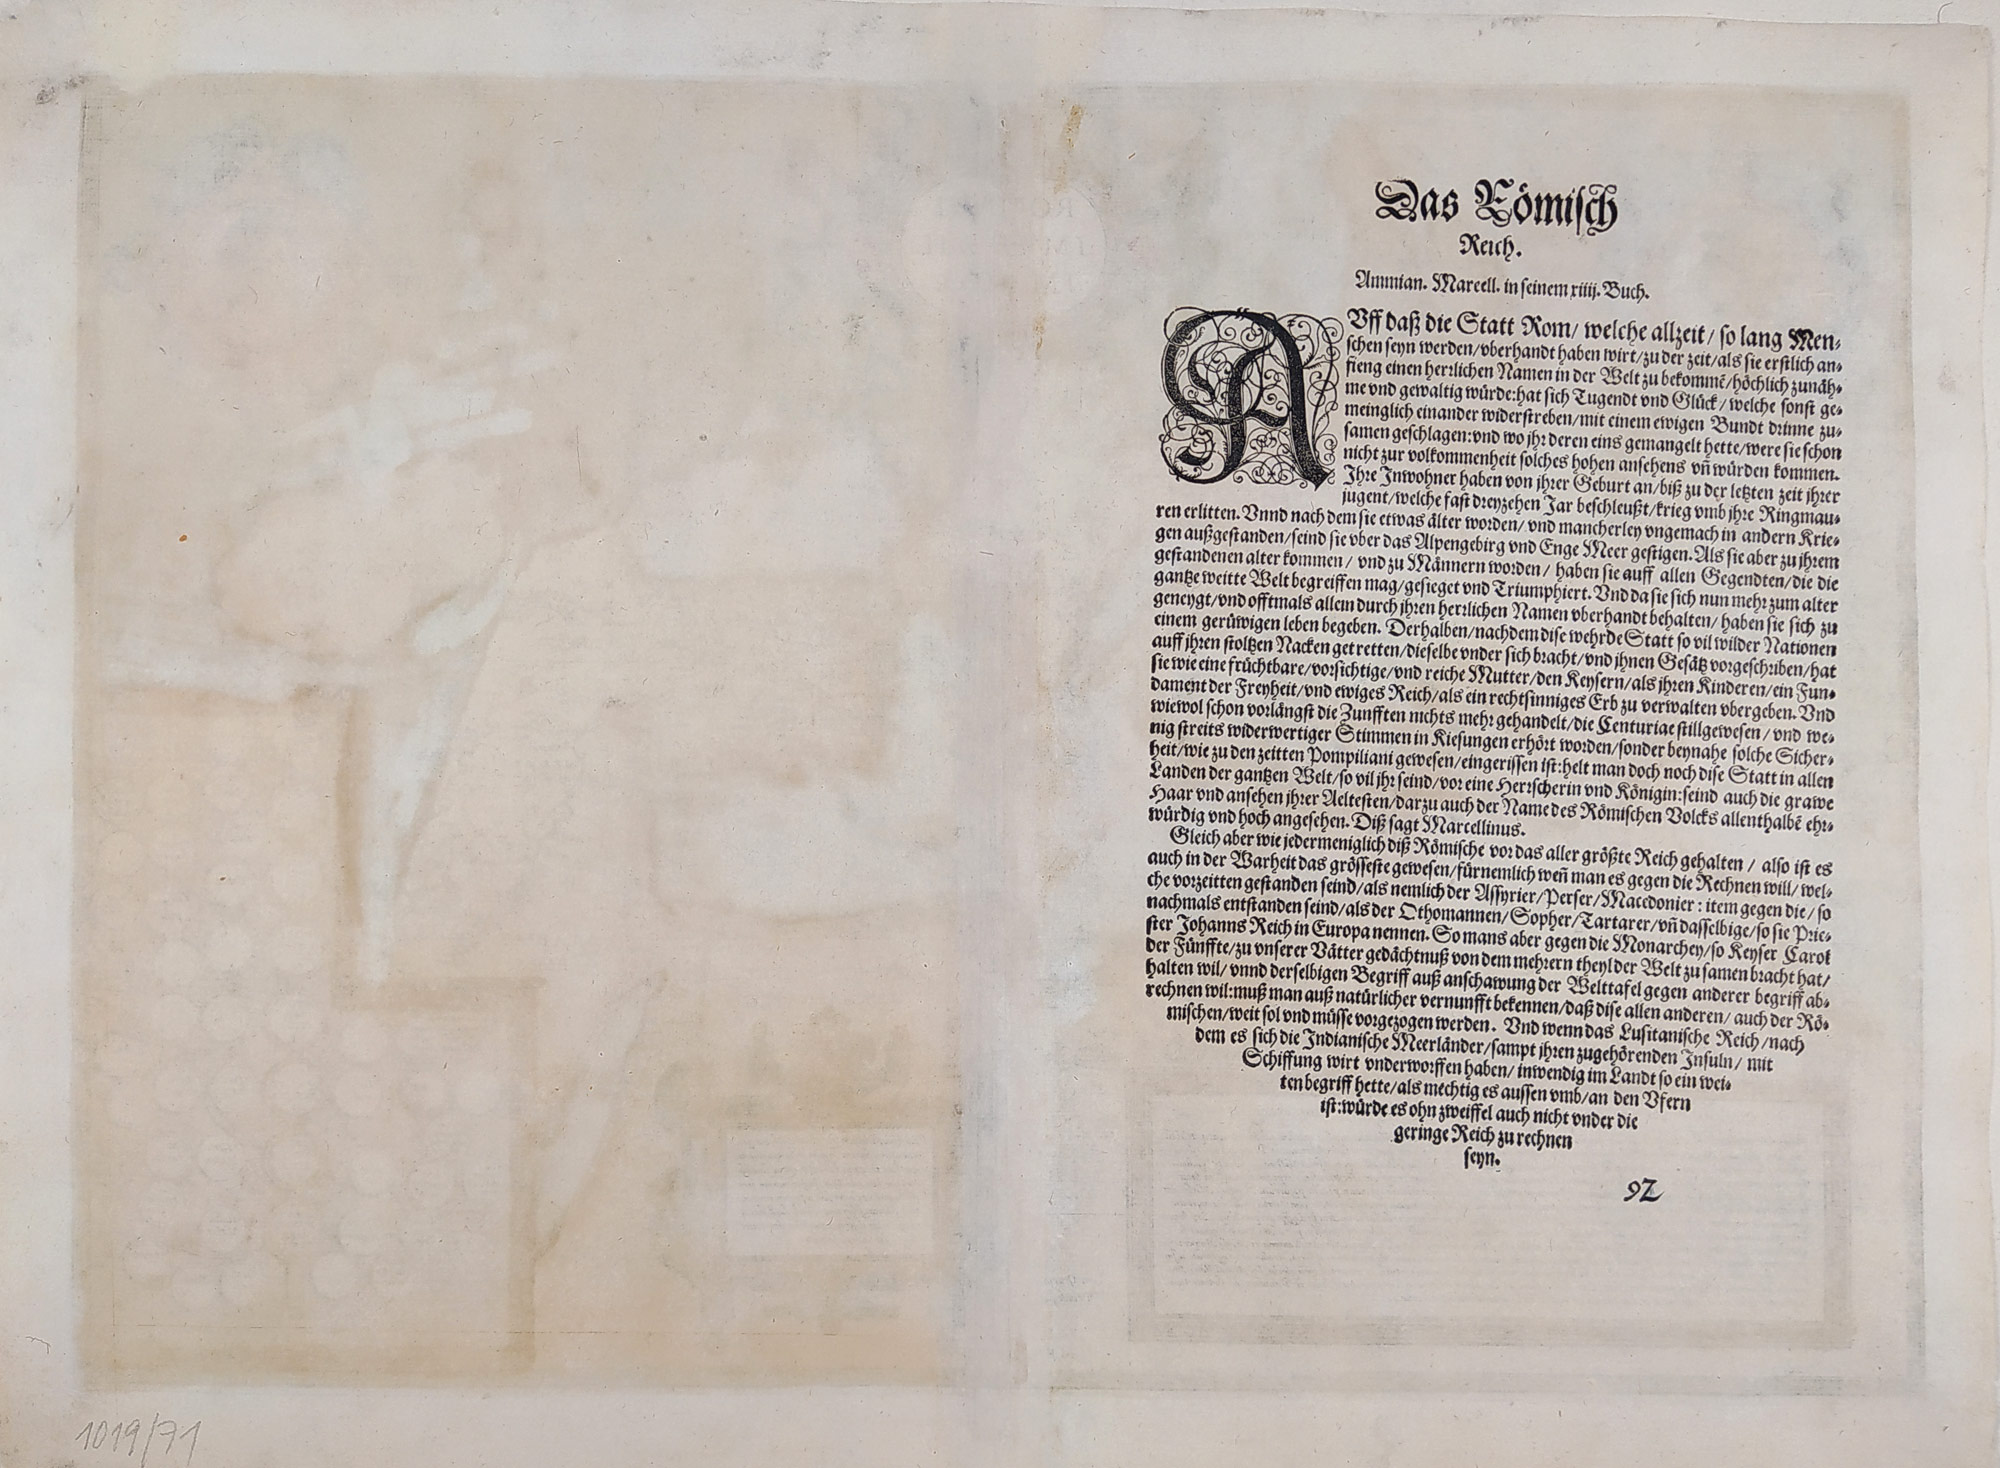 Das Römisch
Reich.
Ammian. Marcell. in seinem xiiij. Buch.
AVff daß die Statt Rom/ welche allzeit/ so lang Men-
schen seyn werden/vberhandt haben wirt/zu der zeit/als sie erstlich an-
fieng einen herrlichen Namen in der Welt zu bekommē/höchlich zunäh-
me vnd gewaltig würde:hat sich Tugendt vnd Glück/ welche sonst ge-
meinglich einander widerstreben/mit einem ewigen Bundt drinne zu-
samen geschlagen:vnd wo jhr deren eins gemangelt hette/were sie schon
nicht zur volkommenheit solches hohen ansehens vñ würden kommen.
Ihre Inwohner haben von jhrer Geburt an/biß zu der letzten zeit jhrer
jugent/welche fast dreyzehen Jar beschleußt/krieg vmb jhre Ringmau-
ren erlitten. Vnnd nach dem sie etwas älter worden/ vnd mancherley vngemach in andern Krie-
gen außgestanden/seind sie vber das Alpengebirg vnd Enge Meer gestigen. Als sie aber zu jhrem
gestandenen alter kommen/ vnd zu Männern worden/ haben sie auff allen Gegendten/die die
gantze weitte Welt begreiffen mag/gesieget vnd Triumphiert. Vnd da sie sich nun mehr zum alter
geneygt/vnd offtmals allein durch jhren herrlichen Namen vberhandt behalten/ haben sie sich zu
einem gerüwigen leben begeben. Derhalben/nachdem dise wehrde Statt so vil wilder Nationen
auff jhren stoltzen Nacken getretten/dieselbe vnder sich bracht/vnd jhnen Gesätz vorgeschriben/hat
sie wie eine früchtbare/vorsichtige/vnd reiche Mutter/den Keysern/als jhren Kinderen/ein Fun-
dament der Freyheit/vnd ewiges Reich/als ein rechtsinniges Erb zu verwalten vbergeben. Vnd
wiewol schon vorlängst die Zunfften nichts mehr gehandelt/die Centuriae stillgewesen/ vnd we-
nig streits widerwertiger Stimmen in Kiesungen erhört worden/sonder beynahe solche Sicher-
heit/wie zu den zeitten Pompiliani gewesen/eingerissen ist:helt man doch noch dise Statt in allen
Landen der gantzen Welt/so vil jhr seind/vor eine Herrscherin vnd Königin:seind auch die grawe
Haar vnd ansehen jhrer Aeltesten/darzu auch der Name des Römischen Volcks allenthalbē ehr-
würdig vnd hoch angesehen. Diß sagt Marcellinus.
Gleich aber wie jedermeniglich diß Römische vor das aller größte Reich gehalten/ also ist es
auch in der Warheit das grösseste gewesen/fürnemlich weñ man es gegen die Rechnen will/ wel-
che vorzeitten gestanden seind/als nemlich der Assyrier/Perser/Macedonier: item gegen die/ so
nachmals entstanden seind/als der Othomannen/Sopher/Tartarer/vñ dasselbige/so sie Prie-
ster Johanns Reich in Europa nennen. So mans aber gegen die Monarchey/so Keyser Carol
der Fünffte/zu vnserer Vätter gedächtnuß von dem mehrern theyl der Welt zu samen bracht hat/
halten wil/ vnnd derselbigen Begriff auß anschawung der Welttafel gegen anderer begriff ab-
rechnen wil:muß man auß natürlicher vernunfft bekennen/daß dise allen anderen/ auch der Rö-
mischen/weit sol vnd müsse vorgezogen werden. Vnd wenn das Lusitanische Reich/nach
dem es sich die Indianische Meerländer/sampt jhren zugehörenden Insuln/ mit
Schiffung wirt vnderworffen haben/ inwendig im Landt so ein wei-
ten begriff hette/als mechtig es aussen vmb/an den Vfern
ist:würde es ohn zweiffel auch nicht vnder die
geringe Reich zu rechnen
seyn.
92
1019/71